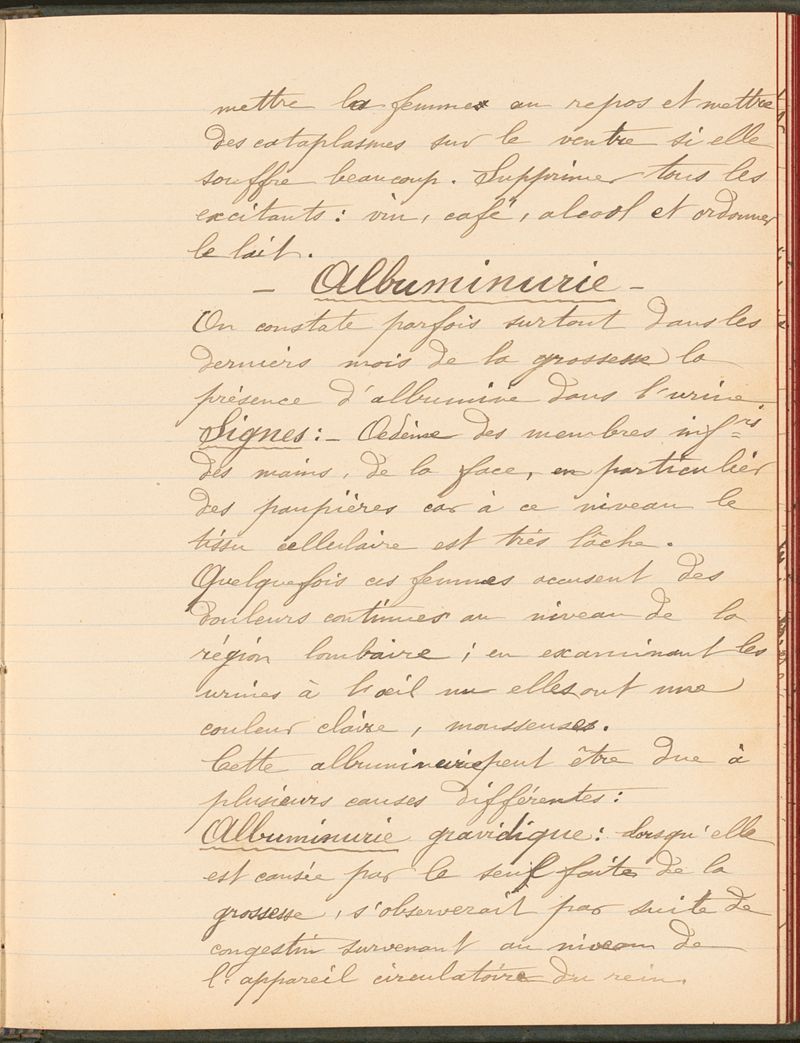 mettre la femme au repos et mettre
des cataplasmes sur le ventre si elle
souffre beaucoup. Supprimer tous les
excitants : vin, café, alcool et ordonner
le lait.
- Albuminurie -
On constate parfois surtout dans les
derniers mois de la grossesse la
présence d'albumine dans l'urine
Signes :- Oedème des membres inf.rs
des mains, de la face, en particulier
des paupières car à ce niveau le
tissu cellulaire est très lâche.
Quelquefois ces femmes accusent des
douleurs continues au niveau de la
région lombaire ; en examinant les
urines à l'oeil nu elles ont une
couleur claire, mousseuses.
Cette albuminurie peut être due à
plusieurs causes différentes :
Albuminurie gravidique : lorsqu'elle
est causée par le seul faite de la
grossesse, s'observerait par suite de
congestion survenant au niveau de
l'appareil circulatoire du rein.